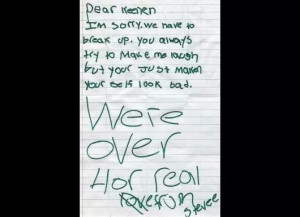 Dear Keenen
I'm sorry. we have to
break up. you always
try to make me laugh
but your Just maken
your self look bad.
We're
over
4or real